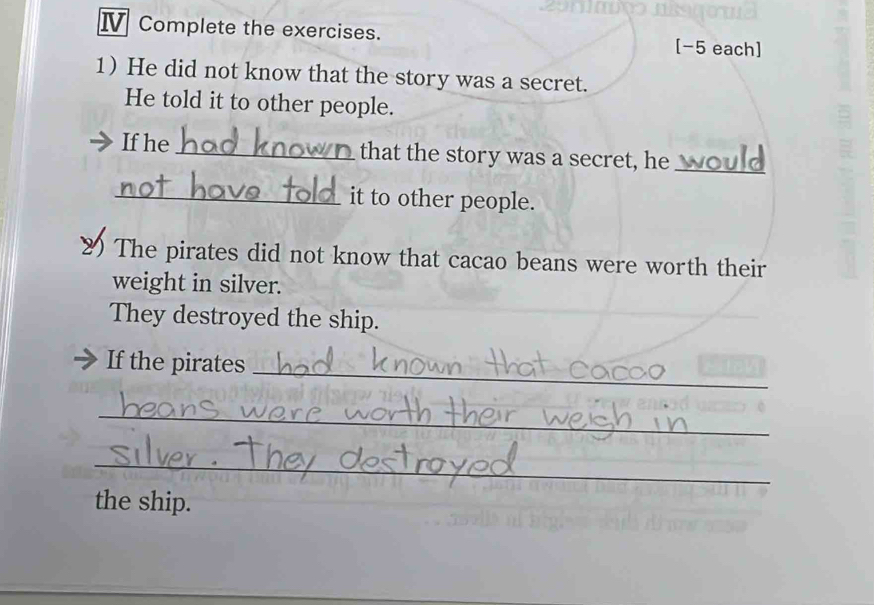 IV Complete the exercises.
[-5 each]
1) He did not know that the story was a secret.
He told it to other people.
→ If he had known that the story was a secret, he would
not have told it to other people.
2) The pirates did not know that cacao beans were worth their
weight in silver.
They destroyed the ship.
→ If the pirates had known that cacao
beans were worth their weigh in
silver. They destroyed
the ship.